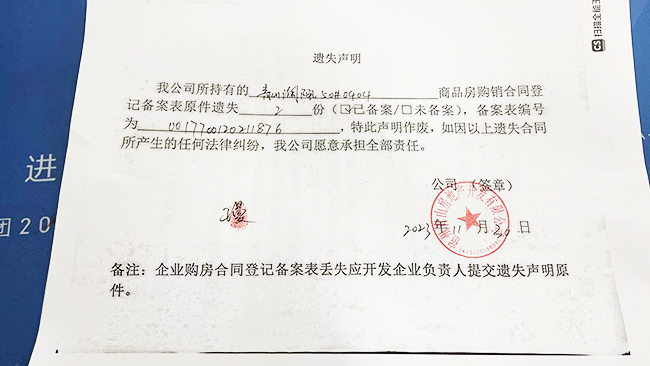 遗失声明
我公司所持有的 50#0404 商品房购销合同登
记备案表原件遗失 2 份（☑已备案/□未备案），备案表编号
为 001770120211876 ，特此声明作废，如因以上遗失合同
所产生的任何法律纠纷，我公司愿意承担全部责任。
公司（签章）
2023年11月20日
备注：企业购房合同登记备案表丢失应开发企业负责人提交遗失声明原
件。
进
团20